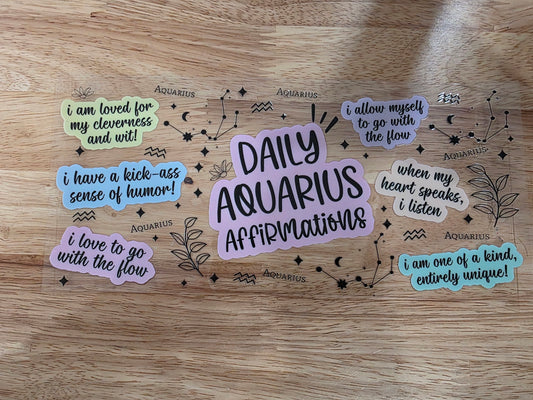 AQUARIUS
AQUARIUS
i am loved for
my cleverness
and wit!
i allow myself
to go with
the flow
DAILY
AQUARIUS
AFFIRMATIONS
AQUARIUS
i have a kick-ass
sense of humor!
when my
heart speaks,
i listen
AQUARIUS
AQUARIUS
i love to go
with the flow
i am one of a kind,
entirely unique!
AQUARIUS